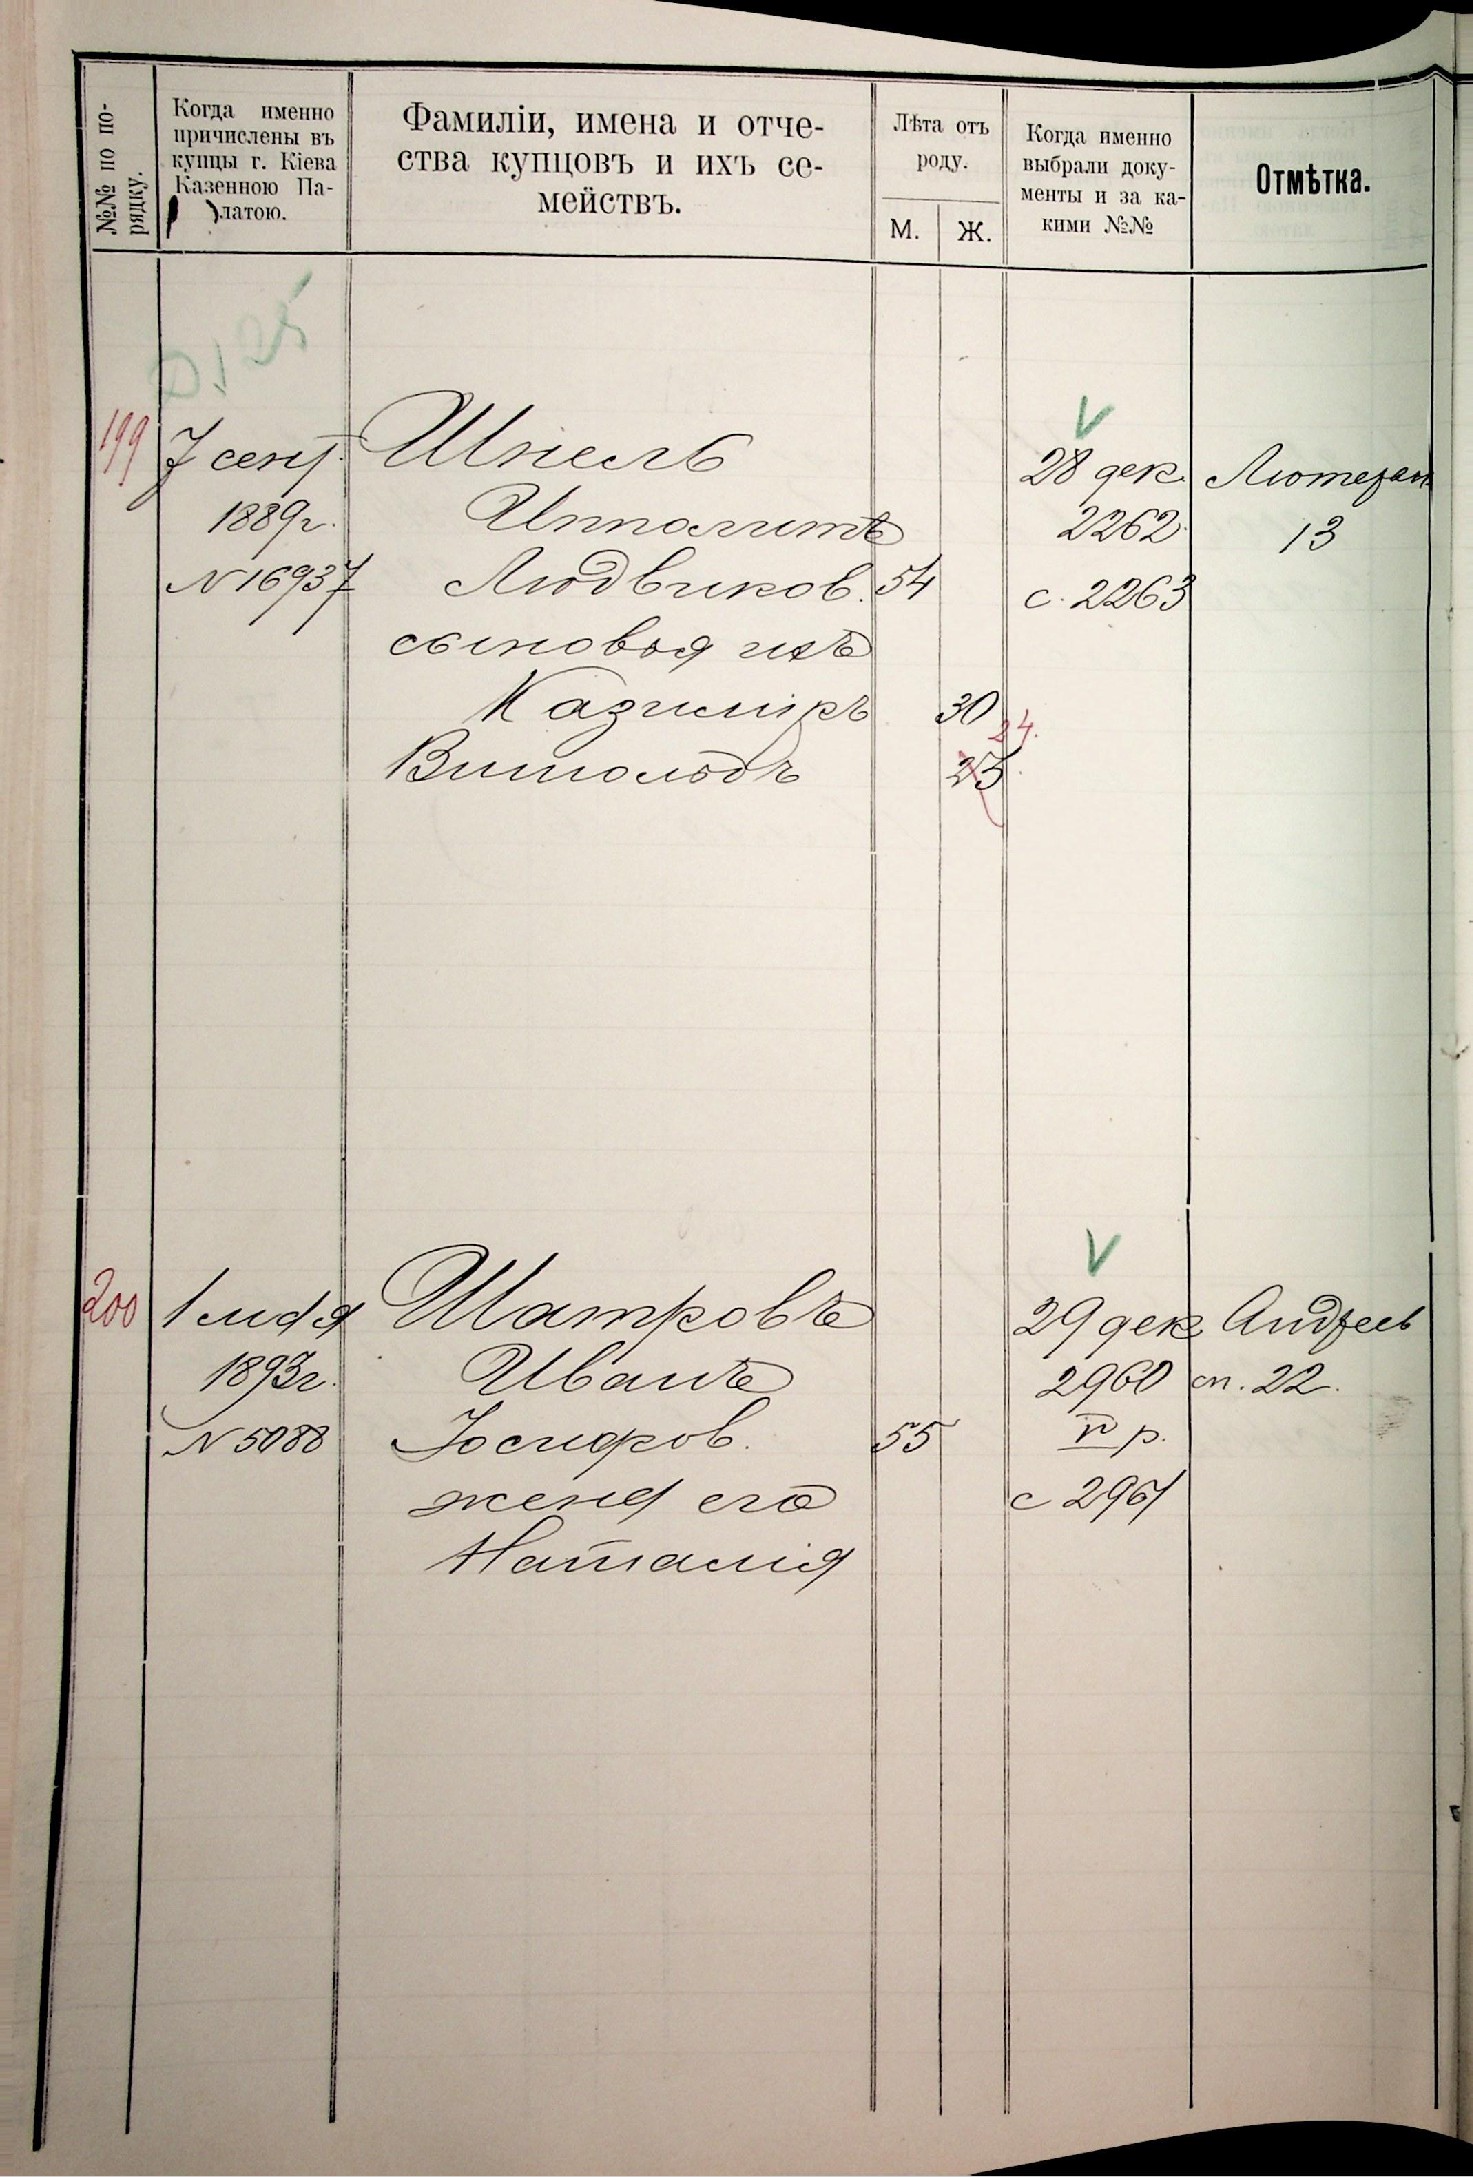 №№ по по-
рядку.
Когда именно
причислены въ
купцы г. Кіева
Казенною Па-
латою.
Фамиліи, имена и отче-
ства купцовъ и ихъ се-
мействъ.
Лѣта отъ
роду.
М.
Ж.
Когда именно
выбрали доку-
менты и за ка-
кими №№
Отмѣтка.
199
7 сент.
1889г.
N 16937
Шнель
Ипполитъ
Людвиков. 54
сыновья ихъ
Казиміръ 30
24.
Витольдъ 25
28 дек.
2262
с. 2263
Лютеран
13
200
1 мая
1893г.
N 5088
Шатровъ
Иванъ
Іосифов. 55
жена его
Наталія
29 дек
2960
V р.
с 2961
Андреев
сп. 22.